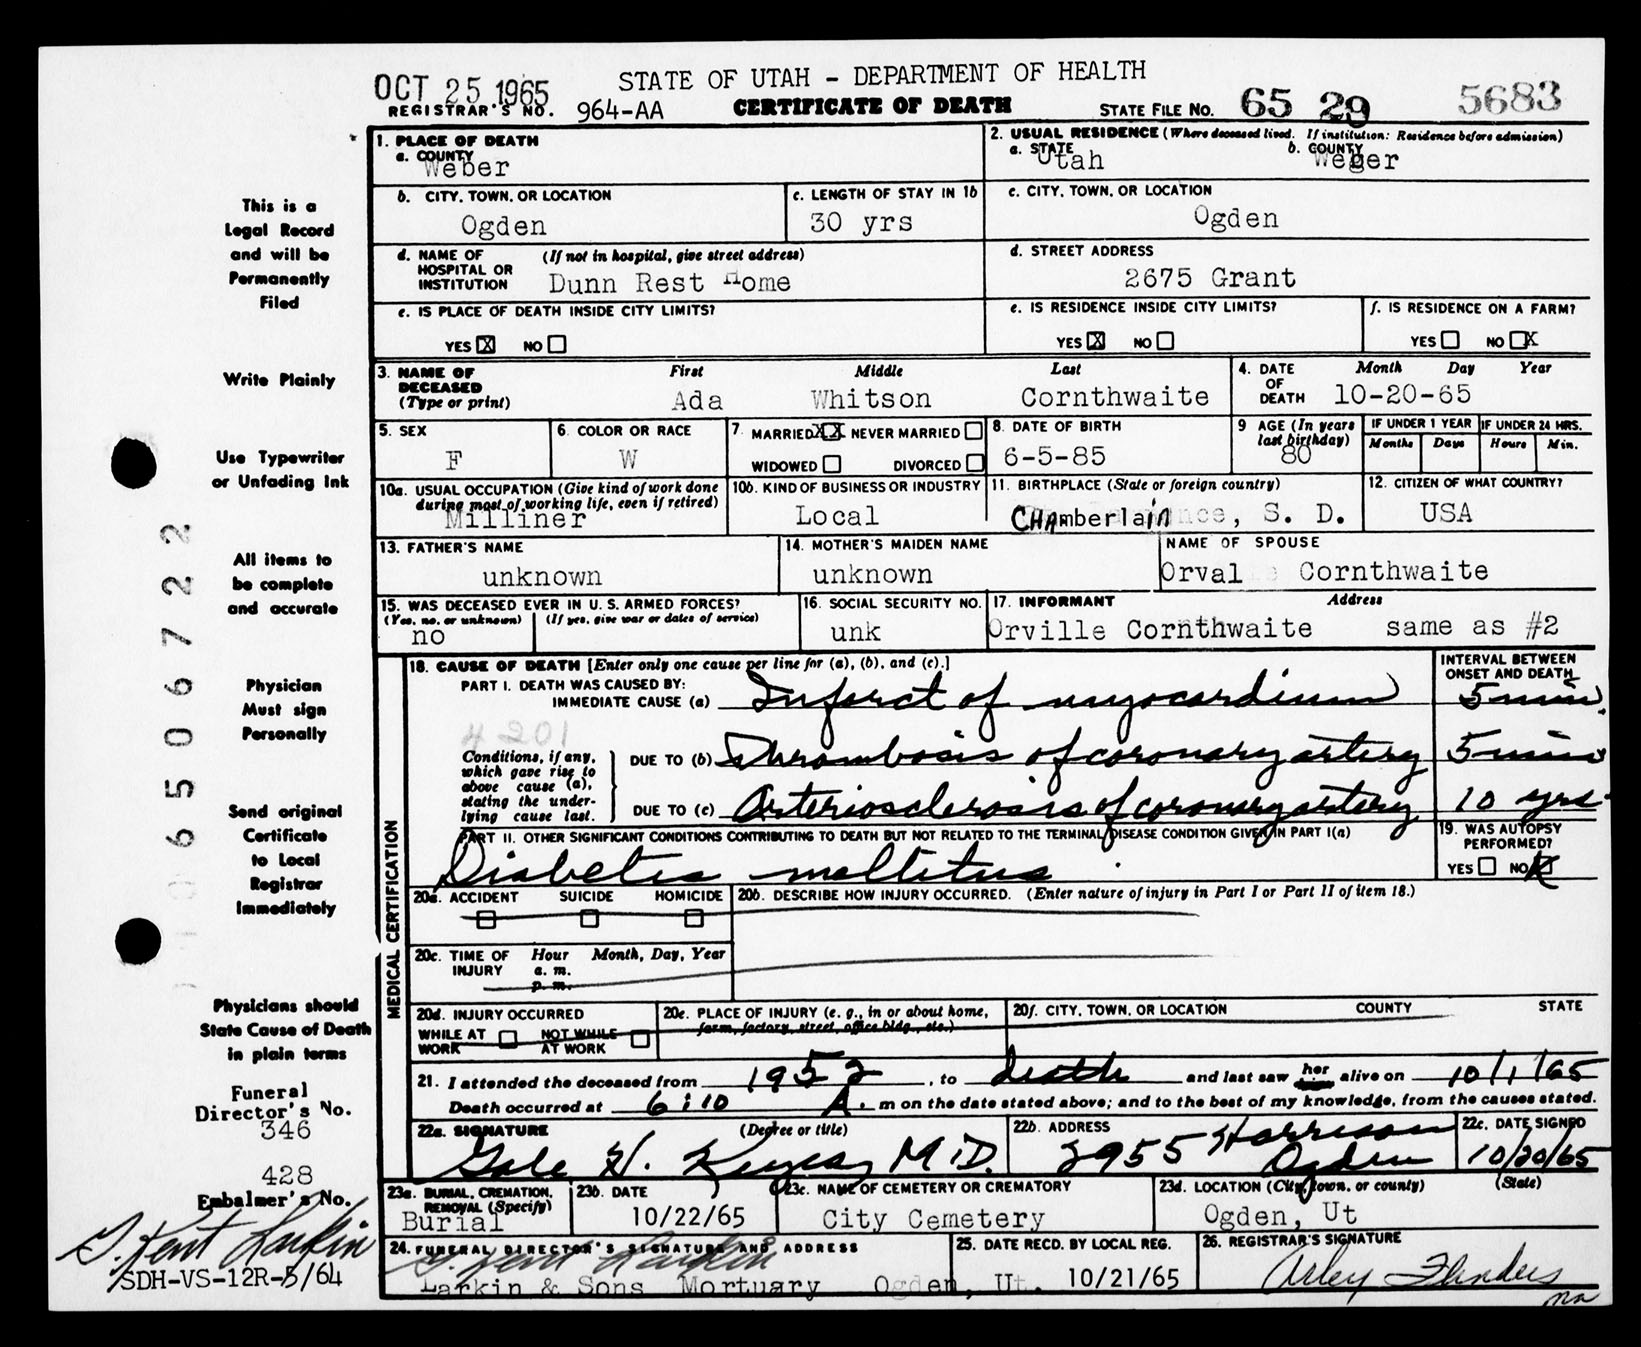 OCT 25 1965
STATE OF UTAH - DEPARTMENT OF HEALTH
REGISTRAR'S NO. 964-AA
CERTIFICATE OF DEATH
STATE FILE NO. 65 29 5683
This is a
Legal Record
and will be
Permanently
Filed
Write Plainly
Use Typewriter
or Unfading Ink
All items to
be complete
and accurate
Physician
Must sign
Personally
Send original
Certificate
to Local
Registrar
Immediately
Physicians should
State Cause of Death
in plain terms
Funeral
Director's No.
346
428
Embalmer's No.
G. Kent Larkin
SDH-VS-12R-5/64
06506722
1. PLACE OF DEATH
a. COUNTY
Weber
2. USUAL RESIDENCE (Where deceased lived. If institution: Residence before admission)
a. STATE b. COUNTY
Utah Weber
b. CITY, TOWN, OR LOCATION
Ogden
c. LENGTH OF STAY IN 1b
30 yrs
c. CITY, TOWN, OR LOCATION
Ogden
d. NAME OF (If not in hospital, give street address)
HOSPITAL OR
INSTITUTION Dunn Rest Home
d. STREET ADDRESS
2675 Grant
e. IS PLACE OF DEATH INSIDE CITY LIMITS?
YES X NO
e. IS RESIDENCE INSIDE CITY LIMITS?
YES X NO
f. IS RESIDENCE ON A FARM?
YES NO X
3. NAME OF First Middle Last
DECEASED
(Type or print) Ada Whitson Cornthwaite
4. DATE Month Day Year
OF
DEATH 10-20-65
5. SEX
F
6. COLOR OR RACE
W
7. MARRIED XX NEVER MARRIED
WIDOWED DIVORCED
8. DATE OF BIRTH
6-5-85
9 AGE (In years
last birthday)
80
IF UNDER 1 YEAR IF UNDER 24 HRS.
Months Days Hours Min.
10a. USUAL OCCUPATION (Give kind of work done
during most of working life, even if retired)
Milliner
10b. KIND OF BUSINESS OR INDUSTRY
Local
11. BIRTHPLACE (State or foreign country)
CHAmberlain, S. D.
12. CITIZEN OF WHAT COUNTRY?
USA
13. FATHER'S NAME
unknown
14. MOTHER'S MAIDEN NAME
unknown
NAME OF SPOUSE
Orval Cornthwaite
15. WAS DECEASED EVER IN U. S. ARMED FORCES?
(Yes, no, or unknown) (If yes, give war or dates of service)
no
16. SOCIAL SECURITY NO.
unk
17. INFORMANT Address
Orville Cornthwaite same as #2
MEDICAL CERTIFICATION
18. CAUSE OF DEATH [Enter only one cause per line for (a), (b), and (c).]
INTERVAL BETWEEN
ONSET AND DEATH
PART I. DEATH WAS CAUSED BY:
IMMEDIATE CAUSE (a) Infarct of myocardium 5 min.
4201
Conditions, if any,
which gave rise to
above cause (a),
stating the under-
lying cause last.
DUE TO (b) Thrombosis of coronary artery 5 min
DUE TO (c) Arteriosclerosis of coronary artery 10 yrs.
PART II. OTHER SIGNIFICANT CONDITIONS CONTRIBUTING TO DEATH BUT NOT RELATED TO THE TERMINAL DISEASE CONDITION GIVEN IN PART I(a)
Diabetes mellitus
19. WAS AUTOPSY
PERFORMED?
YES NO X
20a. ACCIDENT SUICIDE HOMICIDE
20b. DESCRIBE HOW INJURY OCCURRED. (Enter nature of injury in Part I or Part II of item 18.)
20c. TIME OF Hour Month, Day, Year
INJURY a. m.
p. m.
20d. INJURY OCCURRED
WHILE AT NOT WHILE
WORK AT WORK
20e. PLACE OF INJURY (e. g., in or about home,
farm, factory, street, office bldg., etc.)
20f. CITY, TOWN, OR LOCATION COUNTY STATE
21. I attended the deceased from 1952, to death and last saw her alive on 10/1/65
Death occurred at 6:10 A. m on the date stated above; and to the best of my knowledge, from the causes stated.
22a. SIGNATURE (Degree or title)
Gale H. M.D.
22b. ADDRESS
2955 Harrison
Ogden
22c. DATE SIGNED
10/20/65
23a. BURIAL, CREMATION,
REMOVAL (Specify)
Burial
23b. DATE
10/22/65
23c. NAME OF CEMETERY OR CREMATORY
City Cemetery
23d. LOCATION (City, town, or county) (State)
Ogden, Ut
24. FUNERAL DIRECTOR'S SIGNATURE AND ADDRESS
G. Kent Larkin
Larkin & Sons Mortuary Ogden, Ut.
25. DATE RECD. BY LOCAL REG.
10/21/65
26. REGISTRAR'S SIGNATURE
Arley Flinders